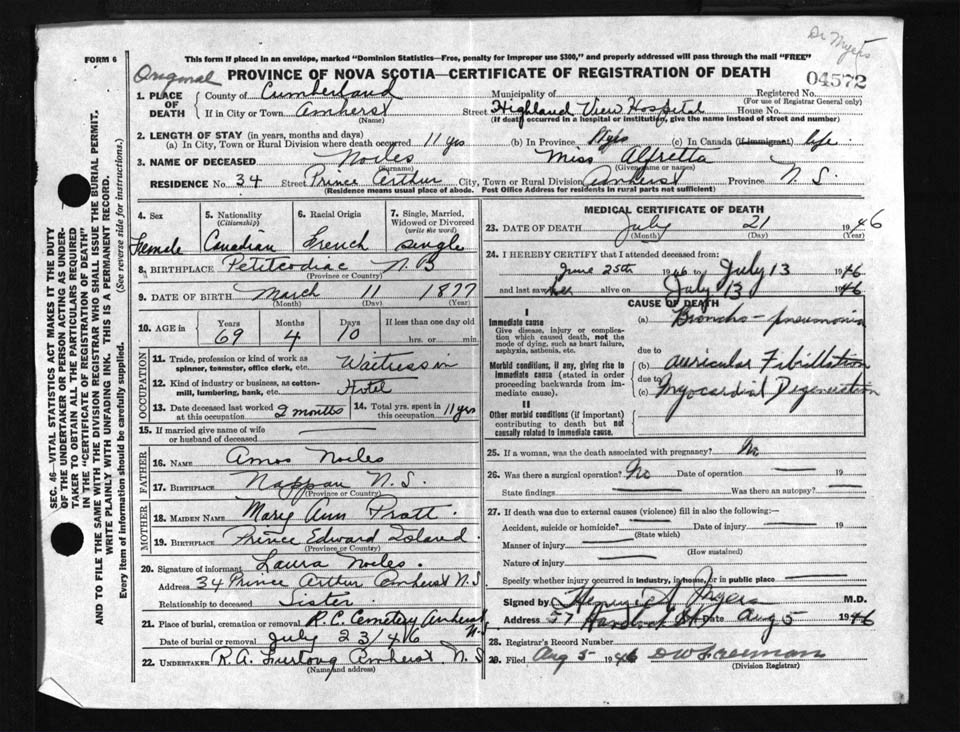 Dr Myers
FORM 6
This form if placed in an envelope, marked "Dominion Statistics—Free, penalty for improper use $300," and properly addressed will pass through the mail "FREE"
Original
PROVINCE OF NOVA SCOTIA—CERTIFICATE OF REGISTRATION OF DEATH
04572
1. PLACE OF DEATH
County of Cumberland Municipality of Registered No.
(For use of Registrar General only)
If in City or Town Amherst Street Highland View Hospital House No.
(Name) (If death occurred in a hospital or institution, give the name instead of street and number)
2. LENGTH OF STAY (in years, months and days)
(a) In City, Town or Rural Division where death occurred 11 yrs (b) In Province 11 yrs (c) In Canada (if immigrant) life
3. NAME OF DECEASED Noiles Miss Alfretta
(Surname) (Given name or names)
RESIDENCE No. 34 Street Prince Arthur City, Town or Rural Division Amherst Province N.S.
(Residence means usual place of abode. Post Office Address for residents in rural parts not sufficient)
4. Sex
Female
5. Nationality
(Citizenship)
Canadian
6. Racial Origin
French
7. Single, Married, Widowed or Divorced
(write the word)
single
8. BIRTHPLACE Petitcodiac N.B
(Province or Country)
9. DATE OF BIRTH March 11 1877
(Month) (Day) (Year)
10. AGE in
Years Months Days If less than one day old
69 4 10 hrs. or min.
OCCUPATION
11. Trade, profession or kind of work as spinner, teamster, office clerk, etc. Waitress in
12. Kind of industry or business, as cotton-mill, lumbering, bank, etc. Hotel
13. Date deceased last worked at this occupation 2 months 14. Total yrs. spent in this occupation 11 yrs
15. If married give name of wife or husband of deceased
FATHER
16. NAME Amos Noiles
17. BIRTHPLACE Nappan N.S.
(Province or Country)
MOTHER
18. MAIDEN NAME Mary Ann Pratt
19. BIRTHPLACE Prince Edward Island
(Province or Country)
20. Signature of informant Laura Noiles
Address 34 Prince Arthur Amherst N.S
Relationship to deceased Sister
21. Place of burial, cremation or removal R.C. Cemetery Amherst N.S
Date of burial or removal July 23/46
22. UNDERTAKER R.A. Amherst, N.S
(Name and address)
MEDICAL CERTIFICATE OF DEATH
23. DATE OF DEATH July 21 1946
(Month) (Day) (Year)
24. I HEREBY CERTIFY that I attended deceased from:
June 25th 1946 to July 13 1946
and last saw her alive on July 13 1946
CAUSE OF DEATH
I
Immediate cause
Give disease, injury or complication which caused death, not the mode of dying, such as heart failure, asphyxia, asthenia, etc.
(a) Broncho-pneumonia
due to
Morbid conditions, if any, giving rise to immediate cause (stated in order proceeding backwards from immediate cause).
(b) Auricular Fibrillation
due to
(c) Myocardial Degeneration
II
Other morbid conditions (if important) contributing to death but not causally related to immediate cause.
25. If a woman, was the death associated with pregnancy? No
26. Was there a surgical operation? No Date of operation 19
State findings Was there an autopsy?
27. If death was due to external causes (violence) fill in also the following:—
Accident, suicide or homicide? Date of injury 19
(State which)
Manner of injury
(How sustained)
Nature of injury
Specify whether injury occurred in industry, in home, or in public place
Signed by Myers M.D.
Address 57 St Date Aug 5 1946
28. Registrar's Record Number
29. Filed Aug 5 1946 D W Freeman
(Division Registrar)
SEC. 46—VITAL STATISTICS ACT MAKES IT THE DUTY
OF THE UNDERTAKER OR PERSON ACTING AS UNDER-
TAKER TO OBTAIN ALL THE PARTICULARS REQUIRED
IN THE "CERTIFICATE OF REGISTRATION OF DEATH"
AND TO FILE THE SAME WITH THE DIVISION REGISTRAR WHO SHALL ISSUE THE BURIAL PERMIT.
WRITE PLAINLY WITH UNFADING INK. THIS IS A PERMANENT RECORD.
Every item of information should be carefully supplied. (See reverse side for instructions.)